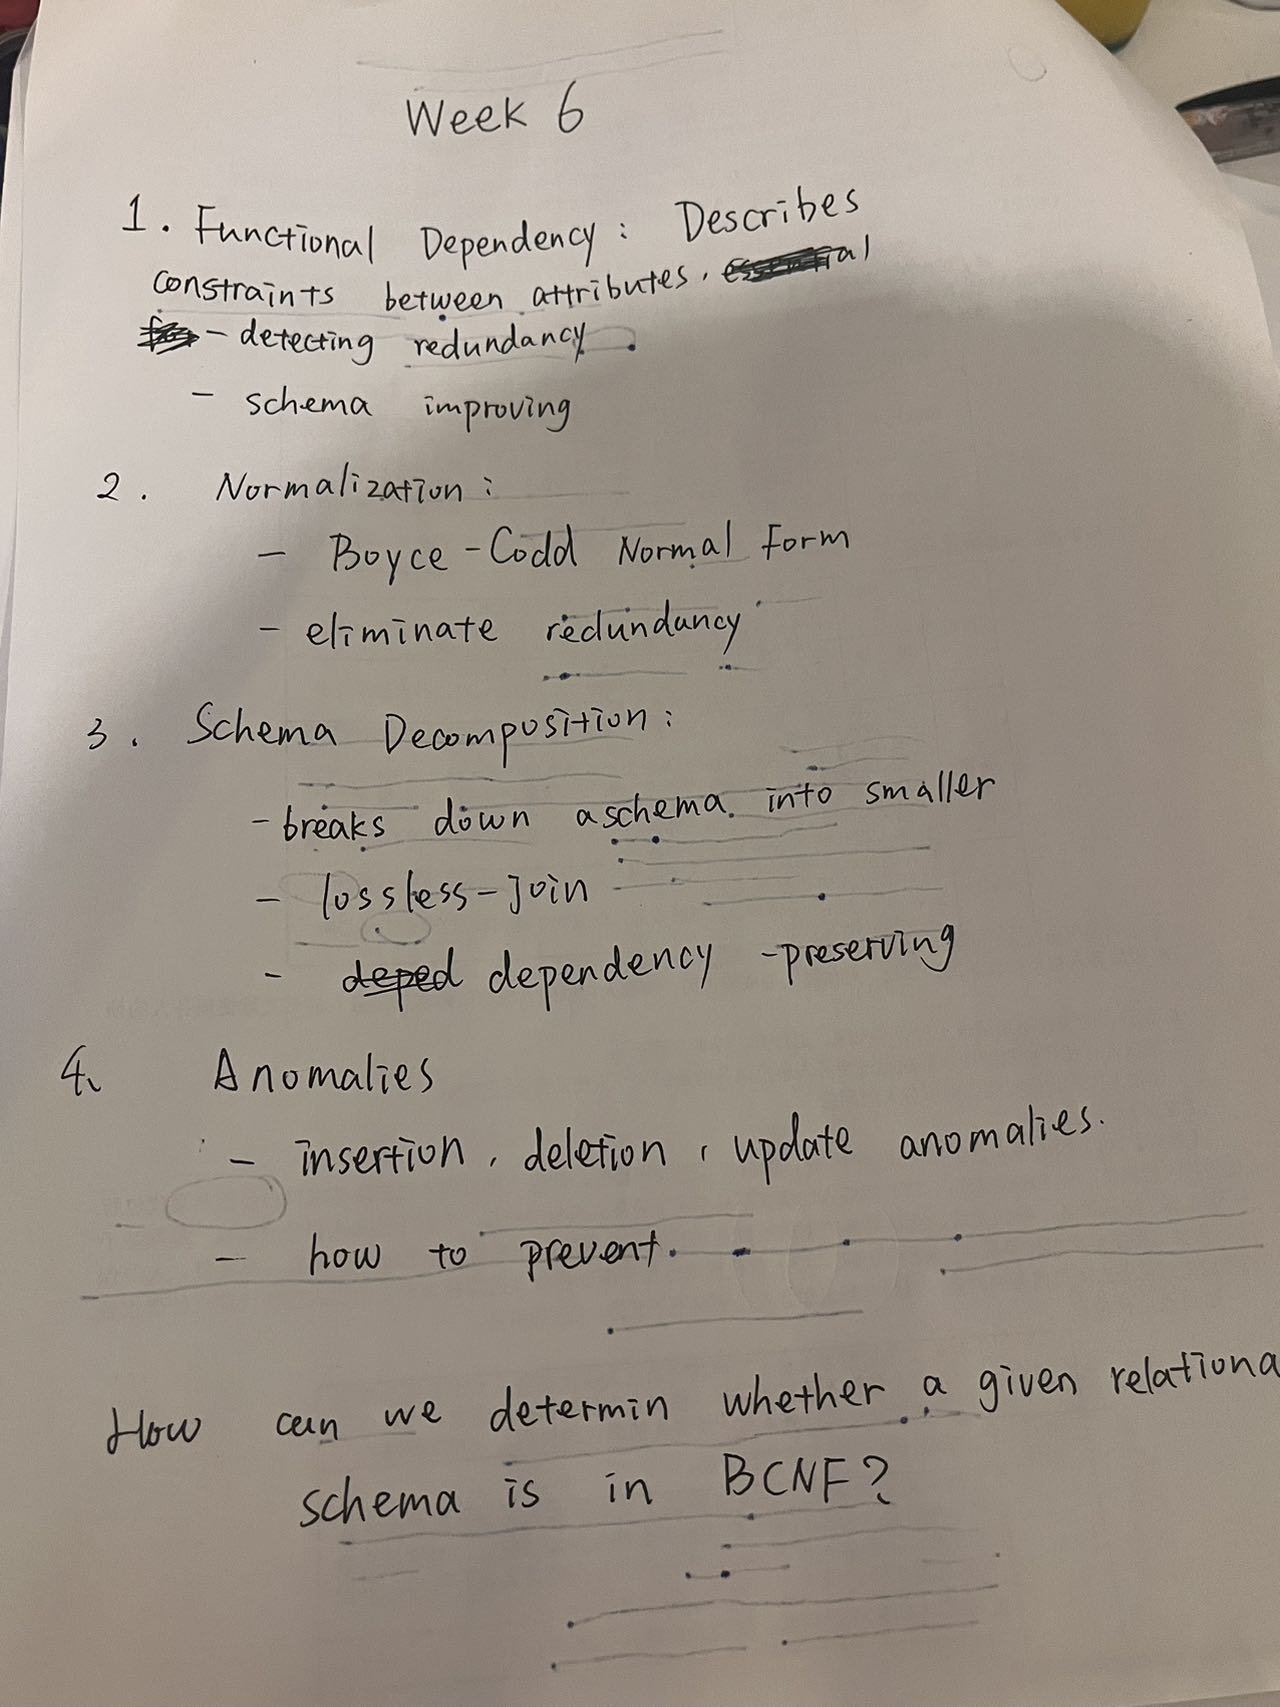 Week 6
1. Functional Dependency: Describes
constraints between attributes.
- detecting redundancy.
- schema improving
2. Normalization:
- Boyce-Codd Normal Form
- eliminate redundancy
3. Schema Decomposition:
- breaks down a schema into smaller
- lossless-join
- deped dependency-preserving
4. Anomalies
- insertion, deletion, update anomalies.
- how to prevent.
How can we determin whether a given relationa
schema is in BCNF?